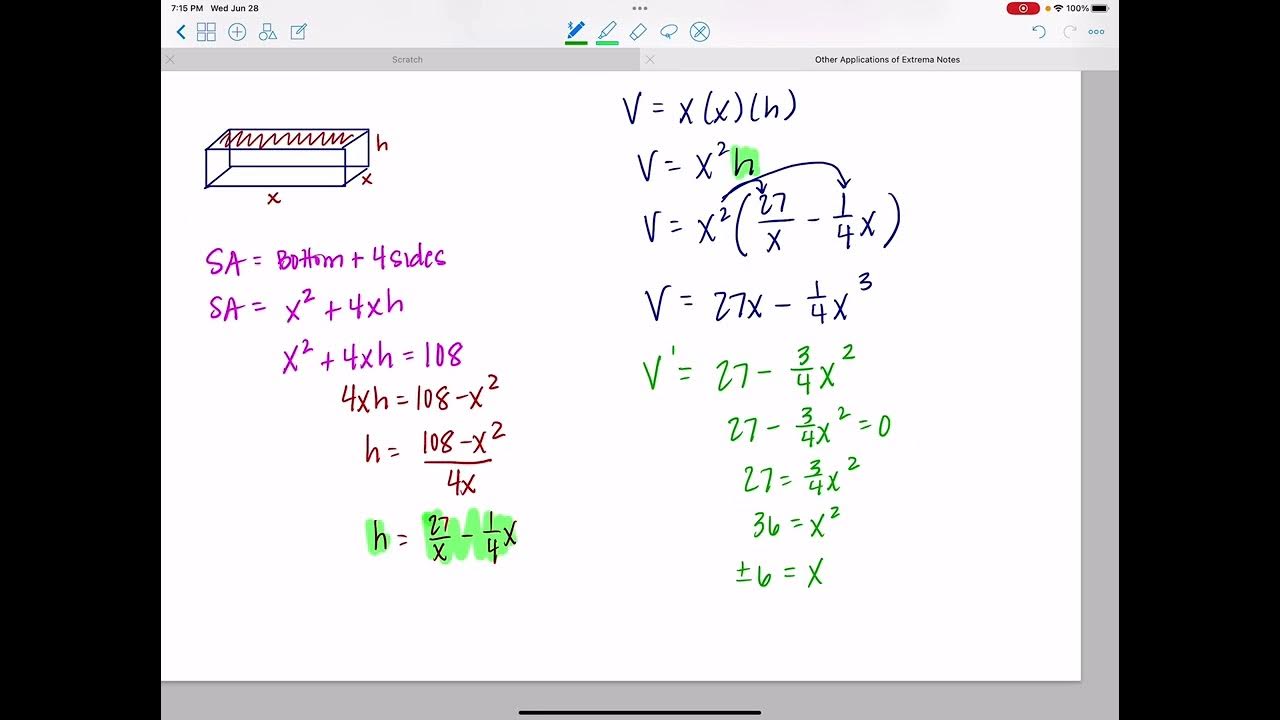 7:15 PM Wed Jun 28
100%
Scratch
Other Applications of Extrema Notes
h
x
x
SA = Bottom + 4 sides
SA = x² + 4xh
x² + 4xh = 108
4xh = 108 - x²
h = (108 - x²)/4x
h = 27/x - 1/4 x
V = x(x)(h)
V = x²h
V = x²(27/x - 1/4 x)
V = 27x - 1/4 x³
V' = 27 - 3/4 x²
27 - 3/4 x² = 0
27 = 3/4 x²
36 = x²
±6 = x